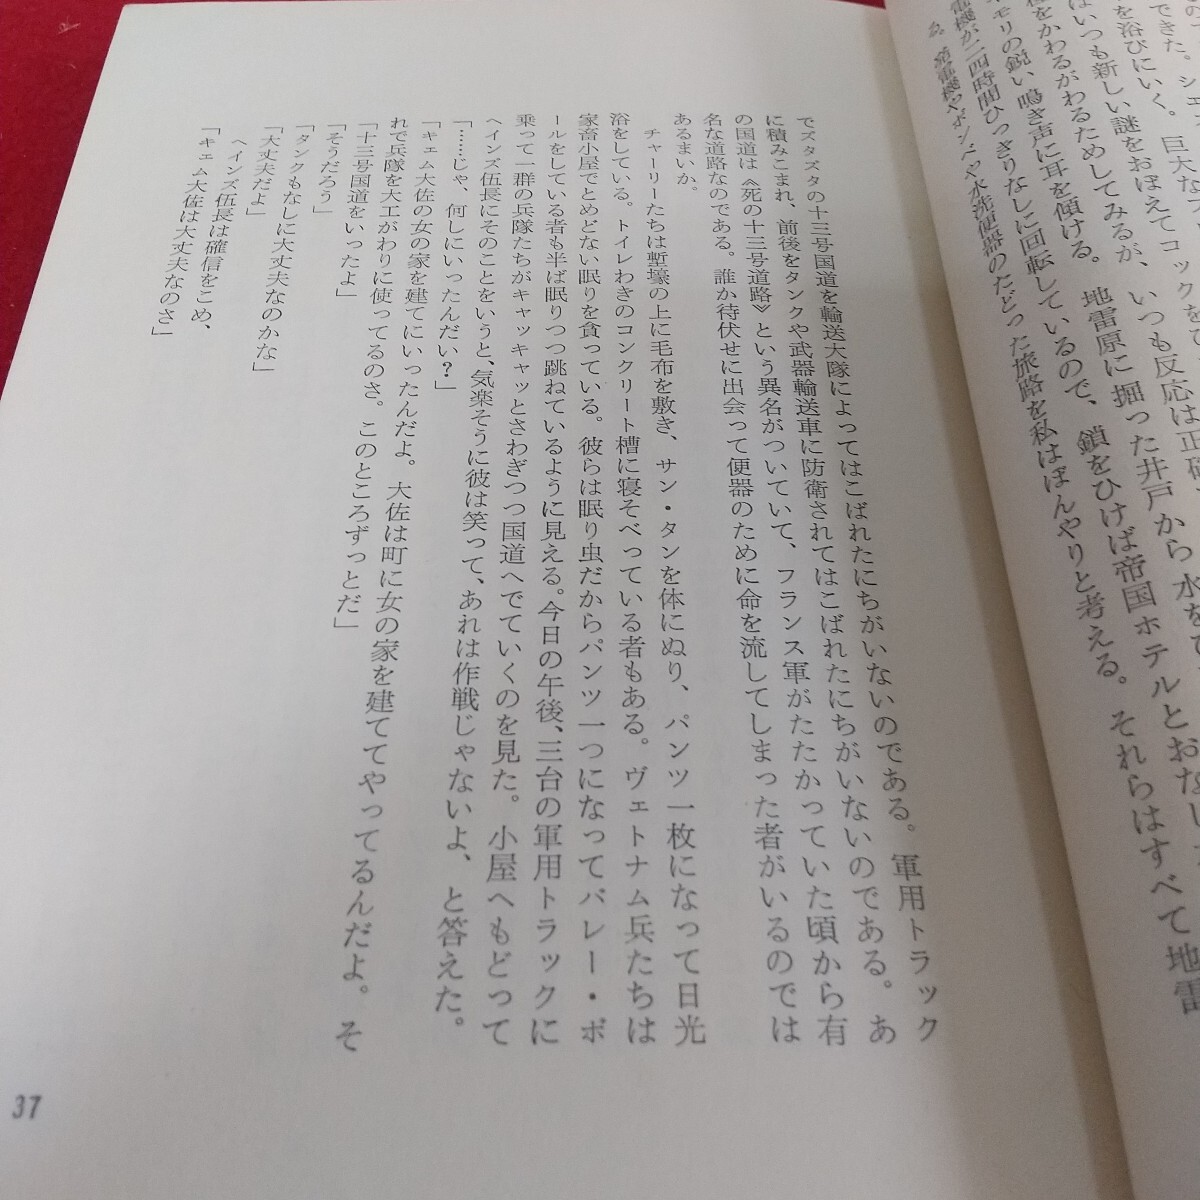 できた。シェ
を浴びにいく。巨大な
はいつも新しい謎をおぼえてコックを
をかわるがわるためしてみるが、いつも反応は正確
モリの鋭い鳴き声に耳を傾ける。地雷原に掘った井戸から水を
機が二四時間ひっきりなしに回転しているので、鎖をひけば帝国ホテルとおなじ
る。発電機やポンプや水洗便器のたどった旅路を私はぼんやりと考える。それらはすべて地雷
でズタズタの十三号国道を輸送大隊によってはこばれたにちがいないのである。軍用トラック
に積みこまれ、前後をタンクや武器輸送車に防衛されてはこばれたにちがいないのである。あ
の国道は《死の十三号道路》という異名がついていて、フランス軍がたたかっていた頃から有
名な道路なのである。誰か待伏せに出会って便器のために命を流してしまった者がいるのでは
あるまいか。
チャーリーたちは塹壕の上に毛布を敷き、サン・タンを体にぬり、パンツ一枚になって日光
浴をしている。トイレわきのコンクリート槽に寝そべっている者もある。ヴェトナム兵たちは
家畜小屋でとめどない眠りを貪っている。彼らは眠り虫だからパンツ一つになってバレー・ボ
ールをしている者も半ば眠りつつ跳ねているように見える。今日の午後、三台の軍用トラックに
乗って一群の兵隊たちがキャッキャッとさわぎつつ国道へでていくのを見た。小屋へもどって
ヘインズ伍長にそのことをいうと、気楽そうに彼は笑って、あれは作戦じゃないよ、と答えた。
「……じゃ、何しにいったんだい？」
「キェム大佐の女の家を建てにいったんだよ。大佐は町に女の家を建ててやってるんだよ。そ
れで兵隊を大工がわりに使ってるのさ。このところずっとだ」
「十三号国道をいったよ」
「そうだろう」
「タンクもなしに大丈夫なのかな」
「大丈夫だよ」
ヘインズ伍長は確信をこめ、
「キェム大佐は大丈夫なのさ」
37